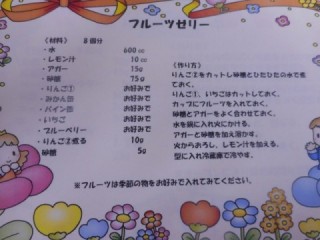 フルーツゼリー
〈材料〉 8個分
・水 600cc
・レモン汁 10cc
・アガー 15g
・砂糖 75g
・りんご① お好みで
・みかん缶 お好みで
・パイン缶 お好みで
・いちご お好みで
・ブルーベリー お好みで
・りんご①煮る 10g
砂糖 5g
〈作り方〉
りんご①をカットし砂糖とひたひたの水で煮ておく。
りんご①、いちごはカットしておく。
カップにフルーツを入れておく。
砂糖とアガーをよく合わせておく。
水を鍋に入れ火にかける。
アガーと砂糖を加え溶かす。
火からおろし、レモン汁を加える。
型に入れ冷蔵庫で冷やす。
※フルーツは季節の物をお好みで入れてみてください。